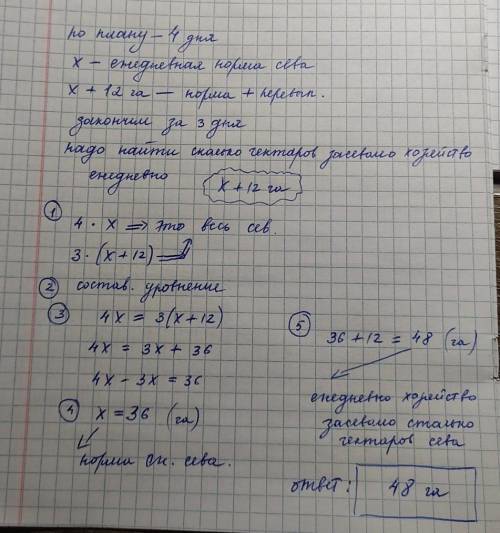 по плану – 4 дня
х – ежедневная норма сева
х + 12 га – норма + перевып.
закончили за 3 дня
надо найти сколько гектаров засевало хозяйство
ежедневно х + 12 га
① 4 · х ⇒ это весь сев.
3 · (х + 12)
② состав. уравнение
③ 4х = 3(х + 12)
4х = 3х + 36
4х – 3х = 36
④ х = 36 (га)
норма еж. сева.
⑤ 36 + 12 = 48 (га)
ежедневно хозяйство
засевало столько
гектаров сева
ответ: 48 га